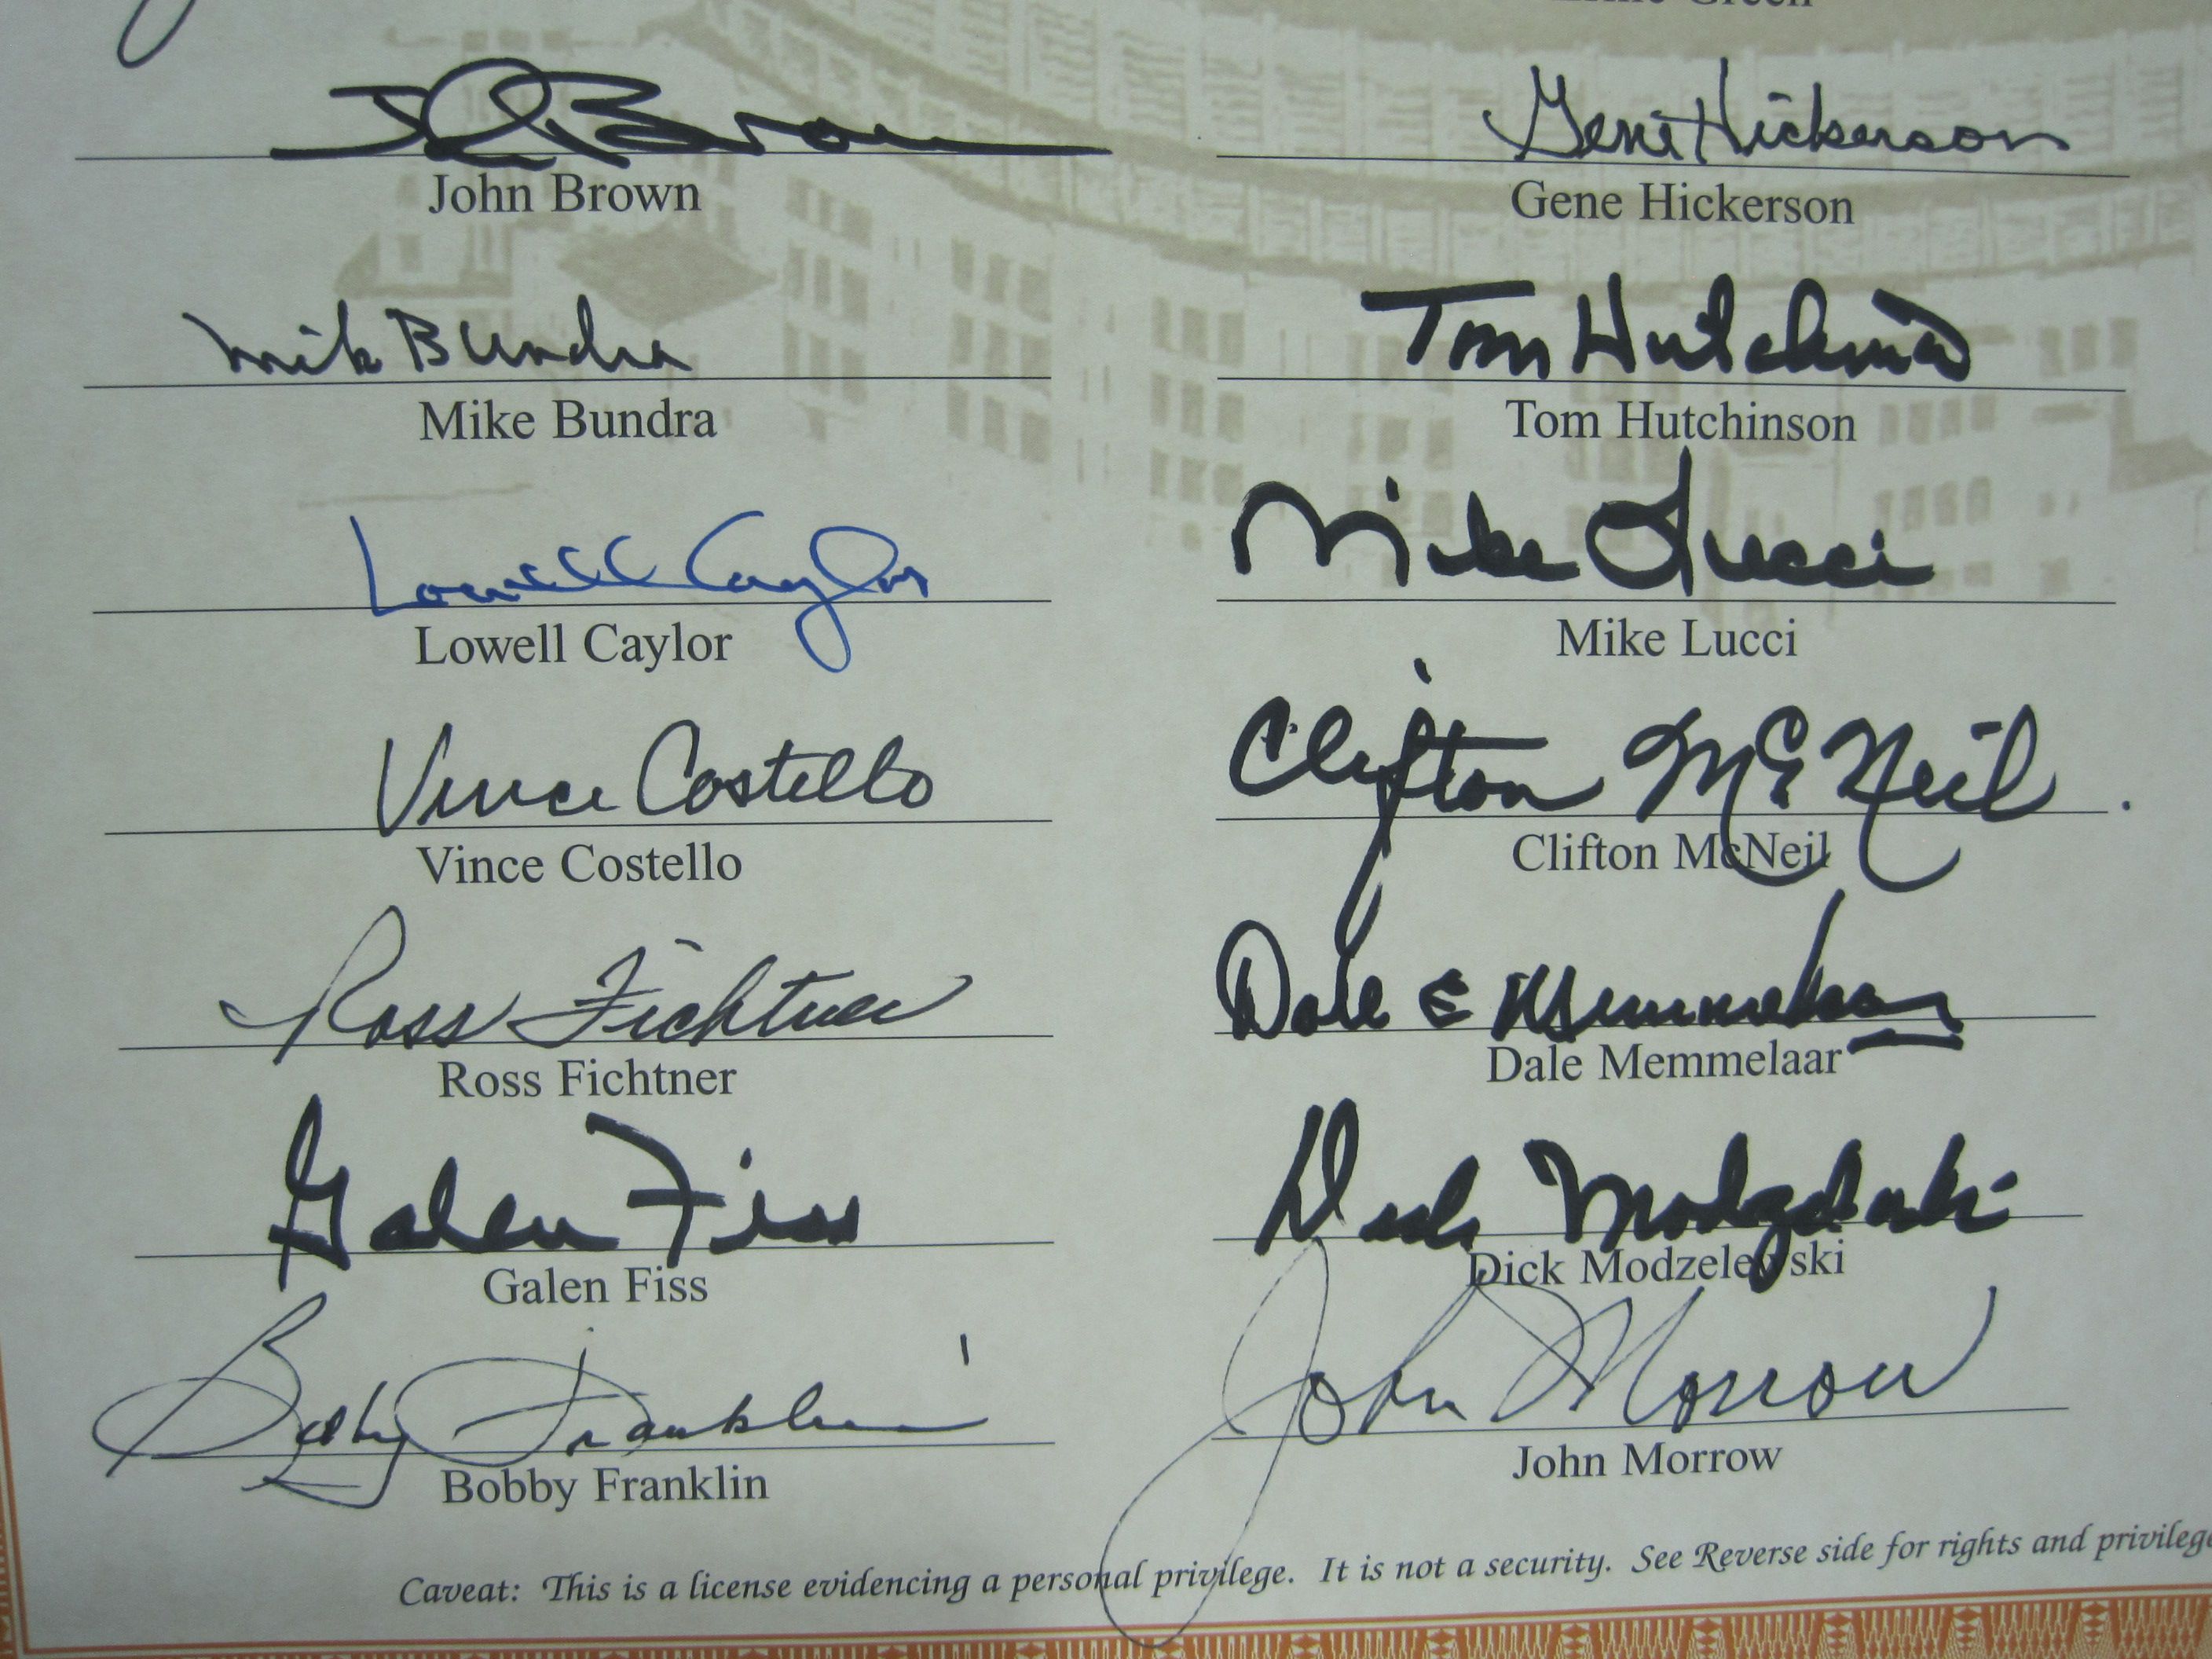 Green
John Brown
John Brown
Gene Hickerson
Gene Hickerson
Mike Bundra
Mike Bundra
Tom Hutchinson
Tom Hutchinson
Lowell Caylor
Lowell Caylor
Mike Lucci
Mike Lucci
Vince Costello
Vince Costello
Clifton McNeil
Clifton McNeil
Ross Fichtner
Ross Fichtner
Dale E Memmelaar
Dale Memmelaar
Galen Fiss
Galen Fiss
Dick Modzelewski
Dick Modzelewski
Bobby Franklin
Bobby Franklin
John Morrow
John Morrow
Caveat: This is a license evidencing a personal privilege. It is not a security. See Reverse side for rights and privilege